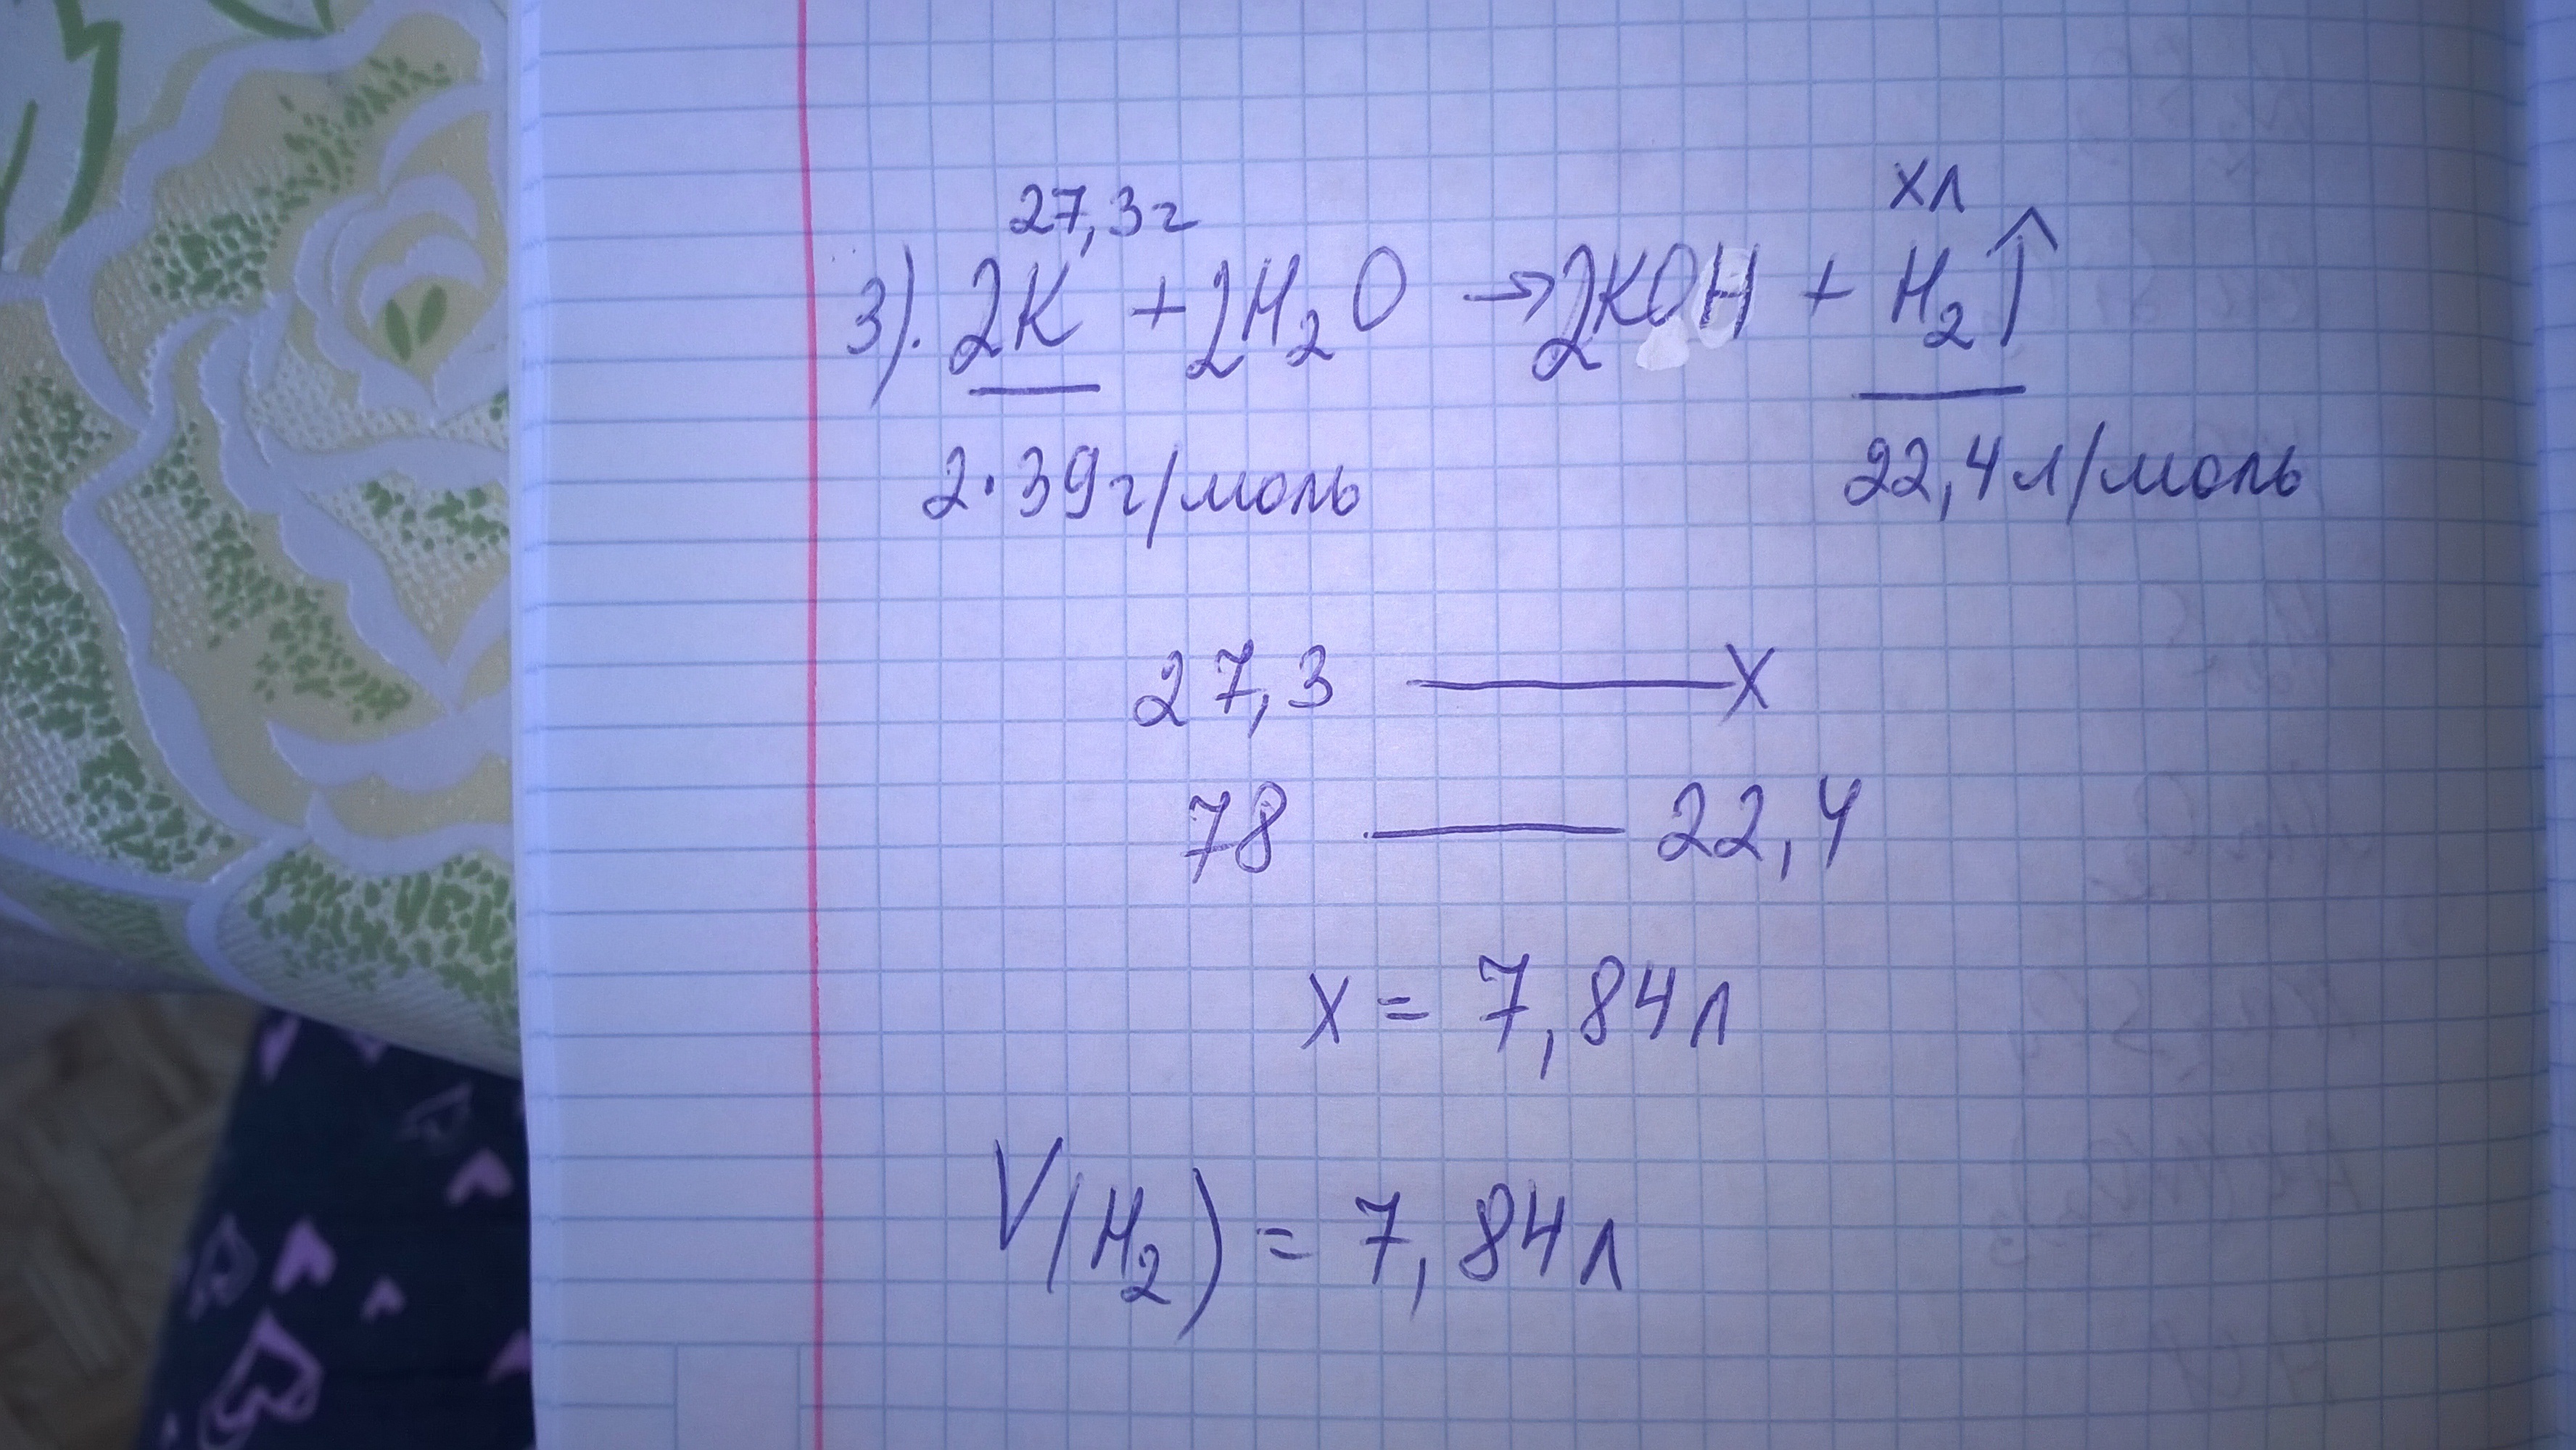 27,3г хл
3). 2K + 2H₂O → 2KOH + H₂↑
2·39г/моль 22,4л/моль
27,3 — X
78 — 22,4
x = 7,84л
V(H₂) = 7,84л